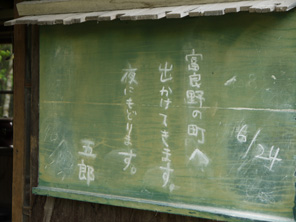 6/24
富良野の町へ
出かけてきます
夜にもどります。
五郎